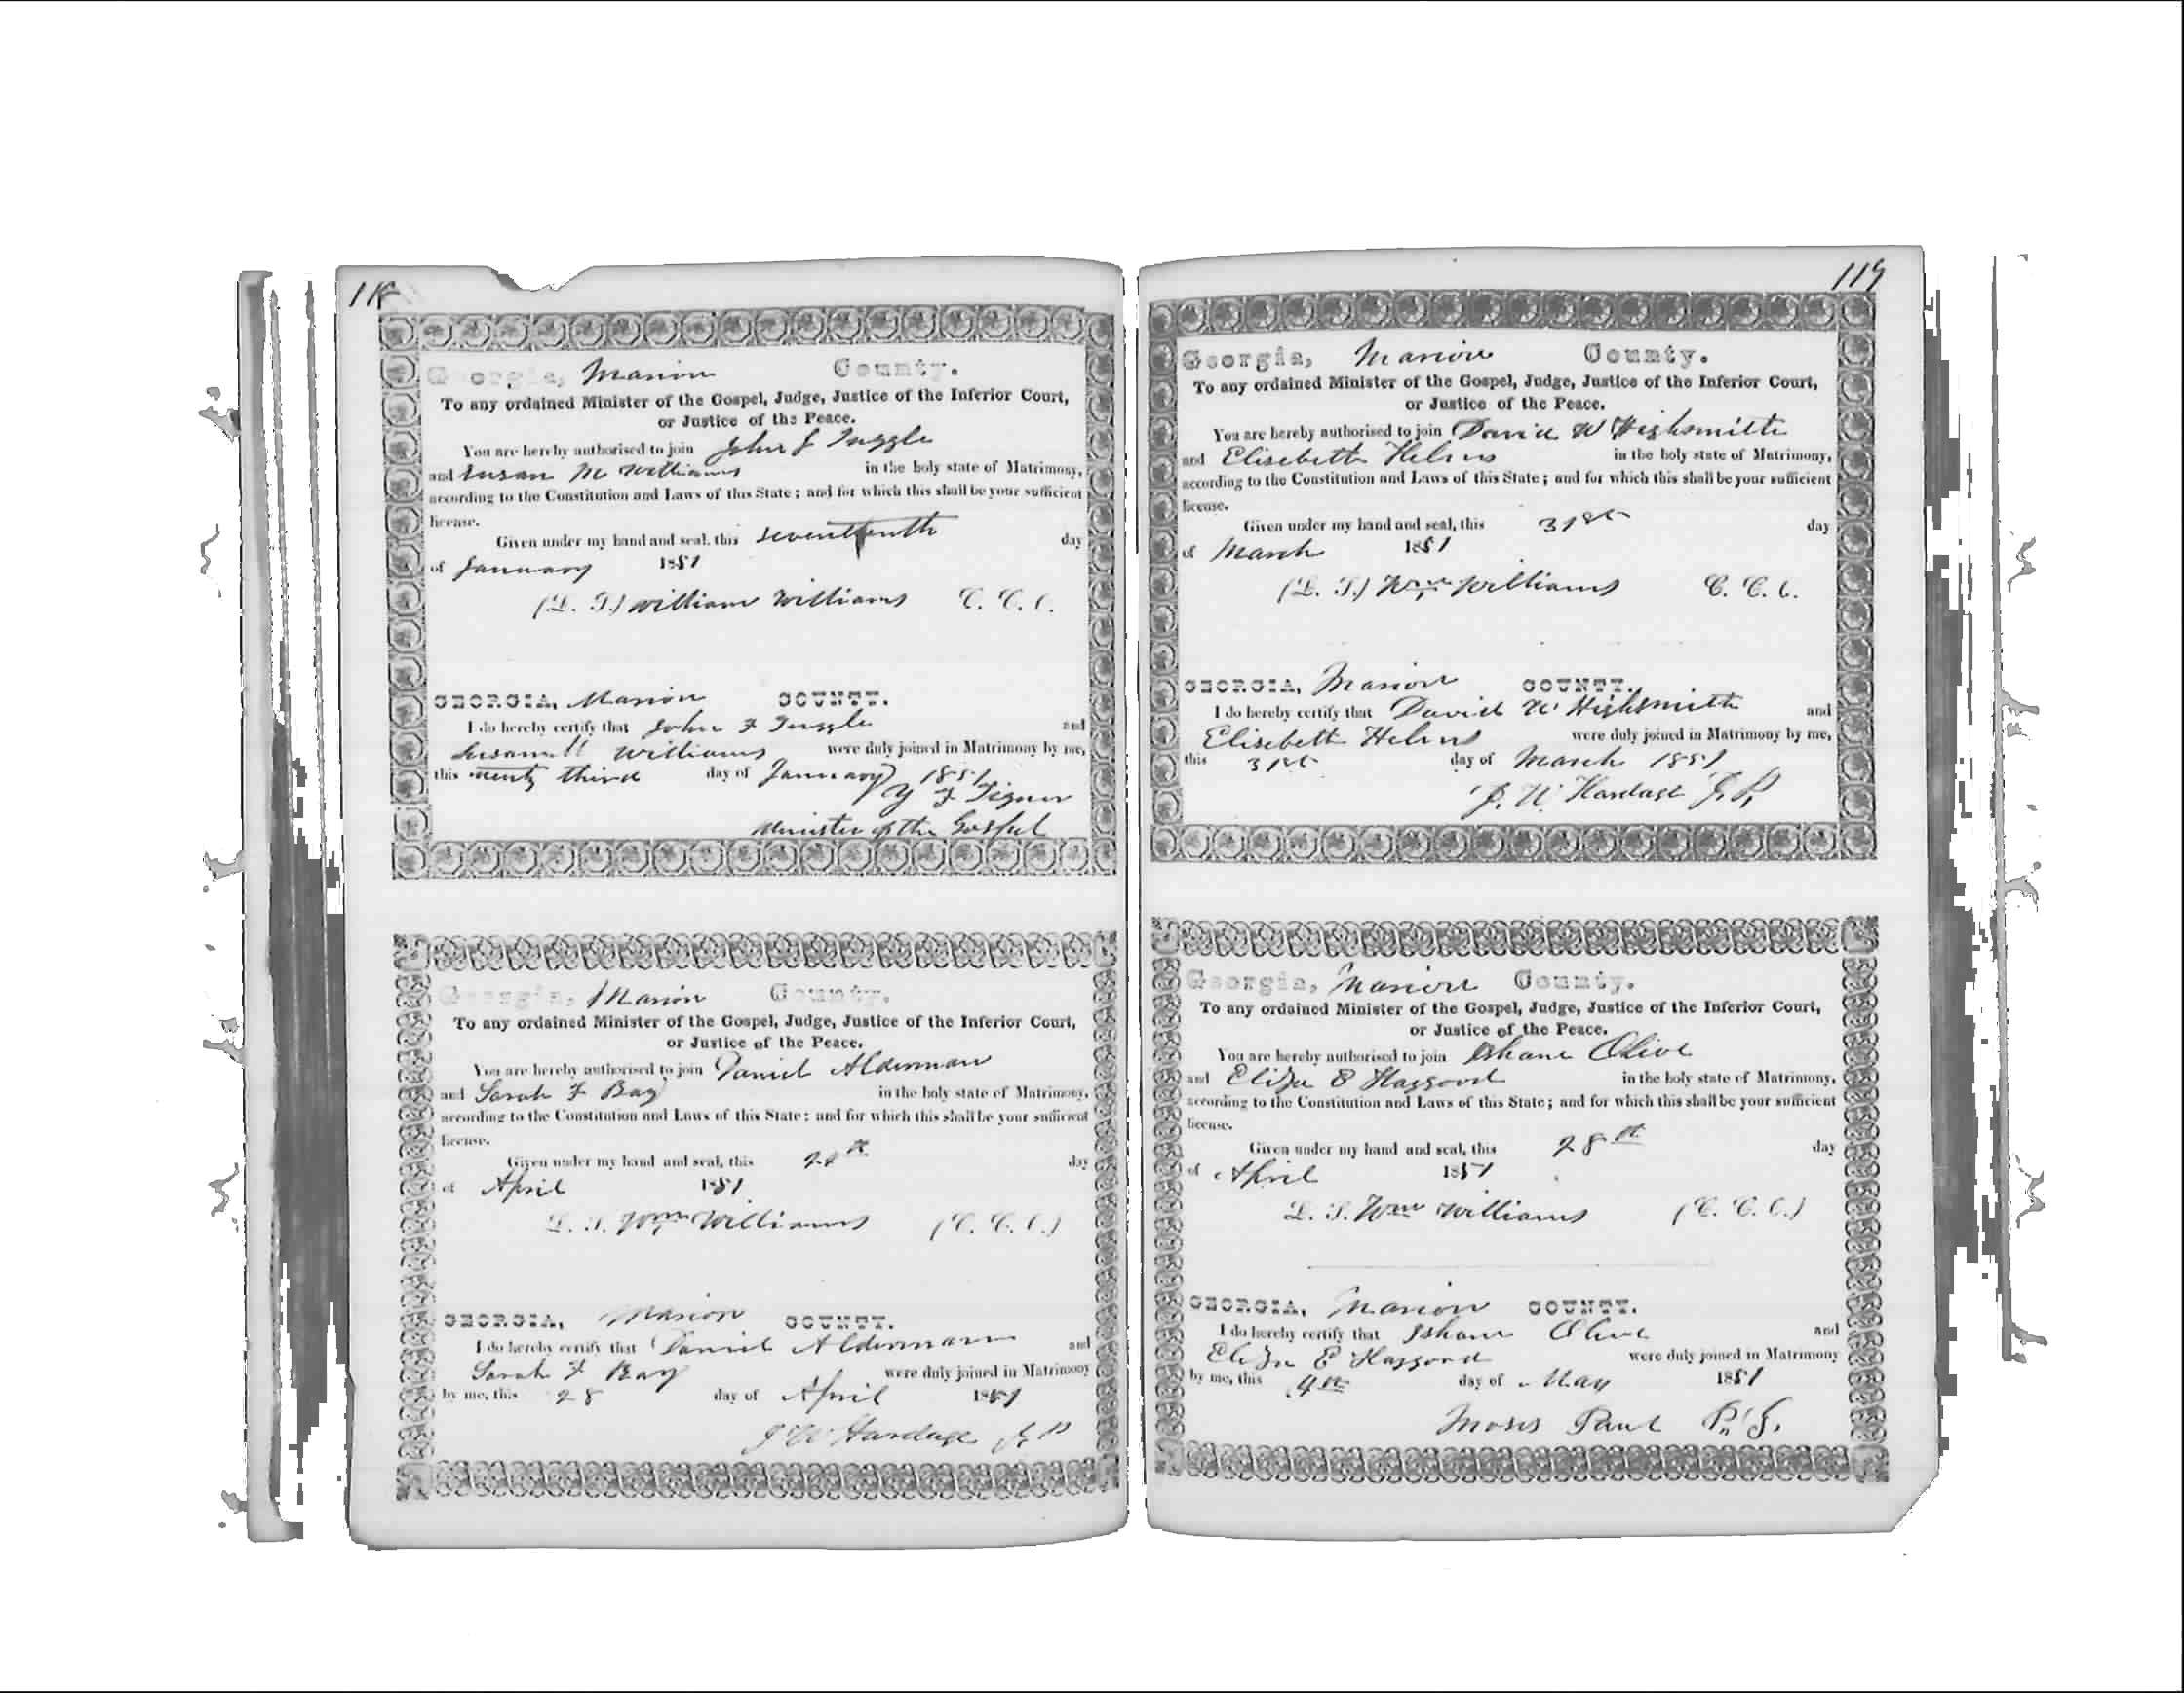 118
Georgia, Marion County.
To any ordained Minister of the Gospel, Judge, Justice of the Inferior Court,
or Justice of the Peace.
You are hereby authorised to join John F Tuggle
and Susan M Williams in the holy state of Matrimony,
according to the Constitution and Laws of this State; and for which this shall be your sufficient
license.
Given under my hand and seal, this seventeenth day
of January 1851
(L. S.) William Williams C. C. C.
GEORGIA, Marion COUNTY.
I do hereby certify that John F Tuggle and
Susan M Williams were duly joined in Matrimony by me,
this twenty third day of January 1851
Y F Tignor
Minister of the Gospel
Georgia, Marion County.
To any ordained Minister of the Gospel, Judge, Justice of the Inferior Court,
or Justice of the Peace.
You are hereby authorised to join Daniel Alderman
and Sarah F Bay in the holy state of Matrimony,
according to the Constitution and Laws of this State: and for which this shall be your sufficient
license.
Given under my hand and seal, this 28th day
of April 1851
L. S. Wm Williams (C. C. C.)
GEORGIA, Marion COUNTY.
I do hereby certify that Daniel Alderman and
Sarah F Bay were duly joined in Matrimony
by me, this 28 day of April 1851
J W Hardage J. P
119
Georgia, Marion County.
To any ordained Minister of the Gospel, Judge, Justice of the Inferior Court,
or Justice of the Peace.
You are hereby authorised to join David W Highsmith
and Elisebeth Helms in the holy state of Matrimony,
according to the Constitution and Laws of this State; and for which this shall be your sufficient
license.
Given under my hand and seal, this 31st day
of March 1851
(L. S.) Wm Williams C. C. C.
GEORGIA, Marion COUNTY.
I do hereby certify that David W Highsmith and
Elisebeth Helms were duly joined in Matrimony by me,
this 31st day of March 1851
J. W. Hardage J. P.
Georgia, Marion County.
To any ordained Minister of the Gospel, Judge, Justice of the Inferior Court,
or Justice of the Peace.
You are hereby authorised to join Isham Olive
and Eliza E Hasgood in the holy state of Matrimony,
according to the Constitution and Laws of this State; and for which this shall be your sufficient
license.
Given under my hand and seal, this 28th day
of April 1851
L. S. Wm Williams (C. C. C.)
GEORGIA, Marion COUNTY.
I do hereby certify that Isham Olive and
Eliza E Hasgood were duly joined in Matrimony
by me, this 4th day of May 1851
Moses Paul P. G.